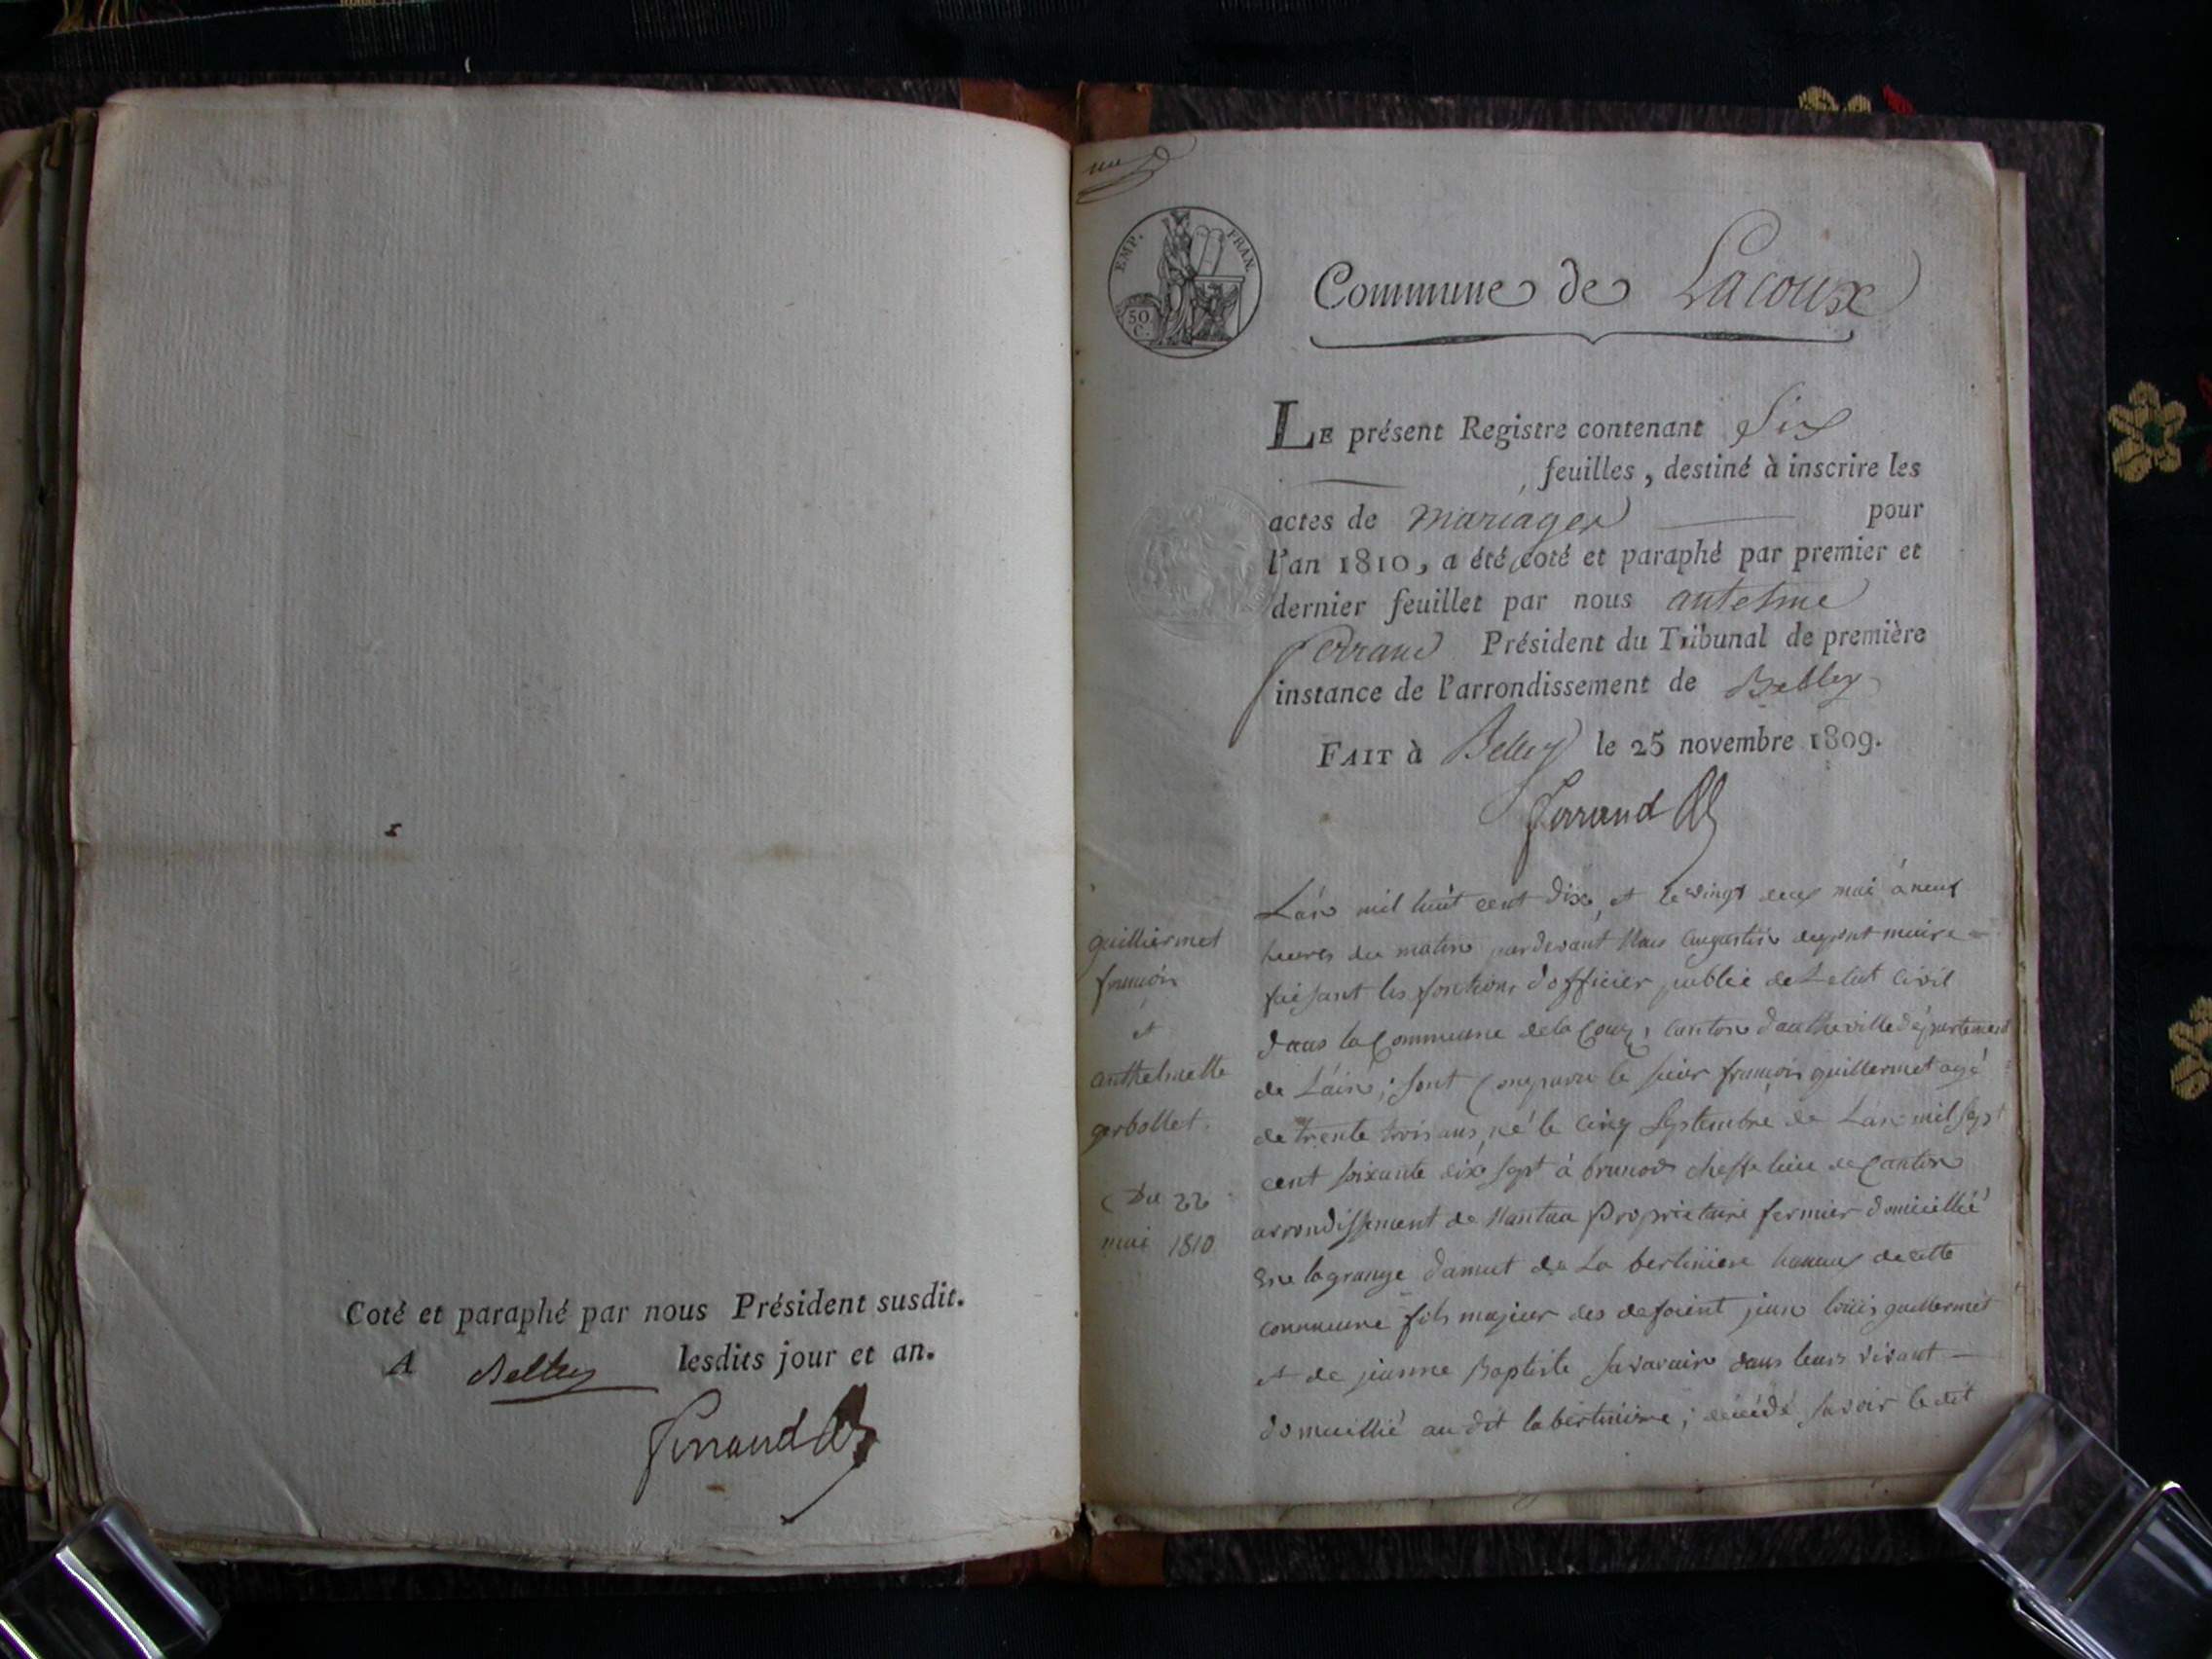 Coté et paraphé par nous Président susdit.
A Belley lesdits jour et an.
Ferrand
un
EMP. FRAN.
50
C.
Commune de Lacoux
LE présent Registre contenant Six
feuilles, destiné à inscrire les
actes de mariages pour
l'an 1810, a été coté et paraphé par premier et
dernier feuillet par nous antelme
ferrand Président du Tribunal de première
instance de l'arrondissement de Belley
FAIT à Belley le 25 novembre 1809.
Ferrand
guilliermet
françois
et
anthelmette
gerbollet.
Du 22
mai 1810
L'an mil huit cent dix, et le vingt deux mai à neuf
heures du matin pardevant Nous augustin dupont maire
faisant les fontions d'officier public de L'etat civil
dans la Commune de la Coux, canton d'autheville département
de L'ain; sont Comparu le sieur françois guillermet agé
de trente trois ans, né le cinq Septembre de L'an mil sept
cent soixante dix sept à brenod cheffe lieu de Canton
arrondissement de Nantua Proprietaire fermier domicillié
En lagrange d'amut de La bertiniere hameau de cette
commune fils majeur des defoient jean louis guillermet
et de jeanne Baptiste savarin dans leurs vivant
domicillié au dit la bertiniere; décédé savoir le dit